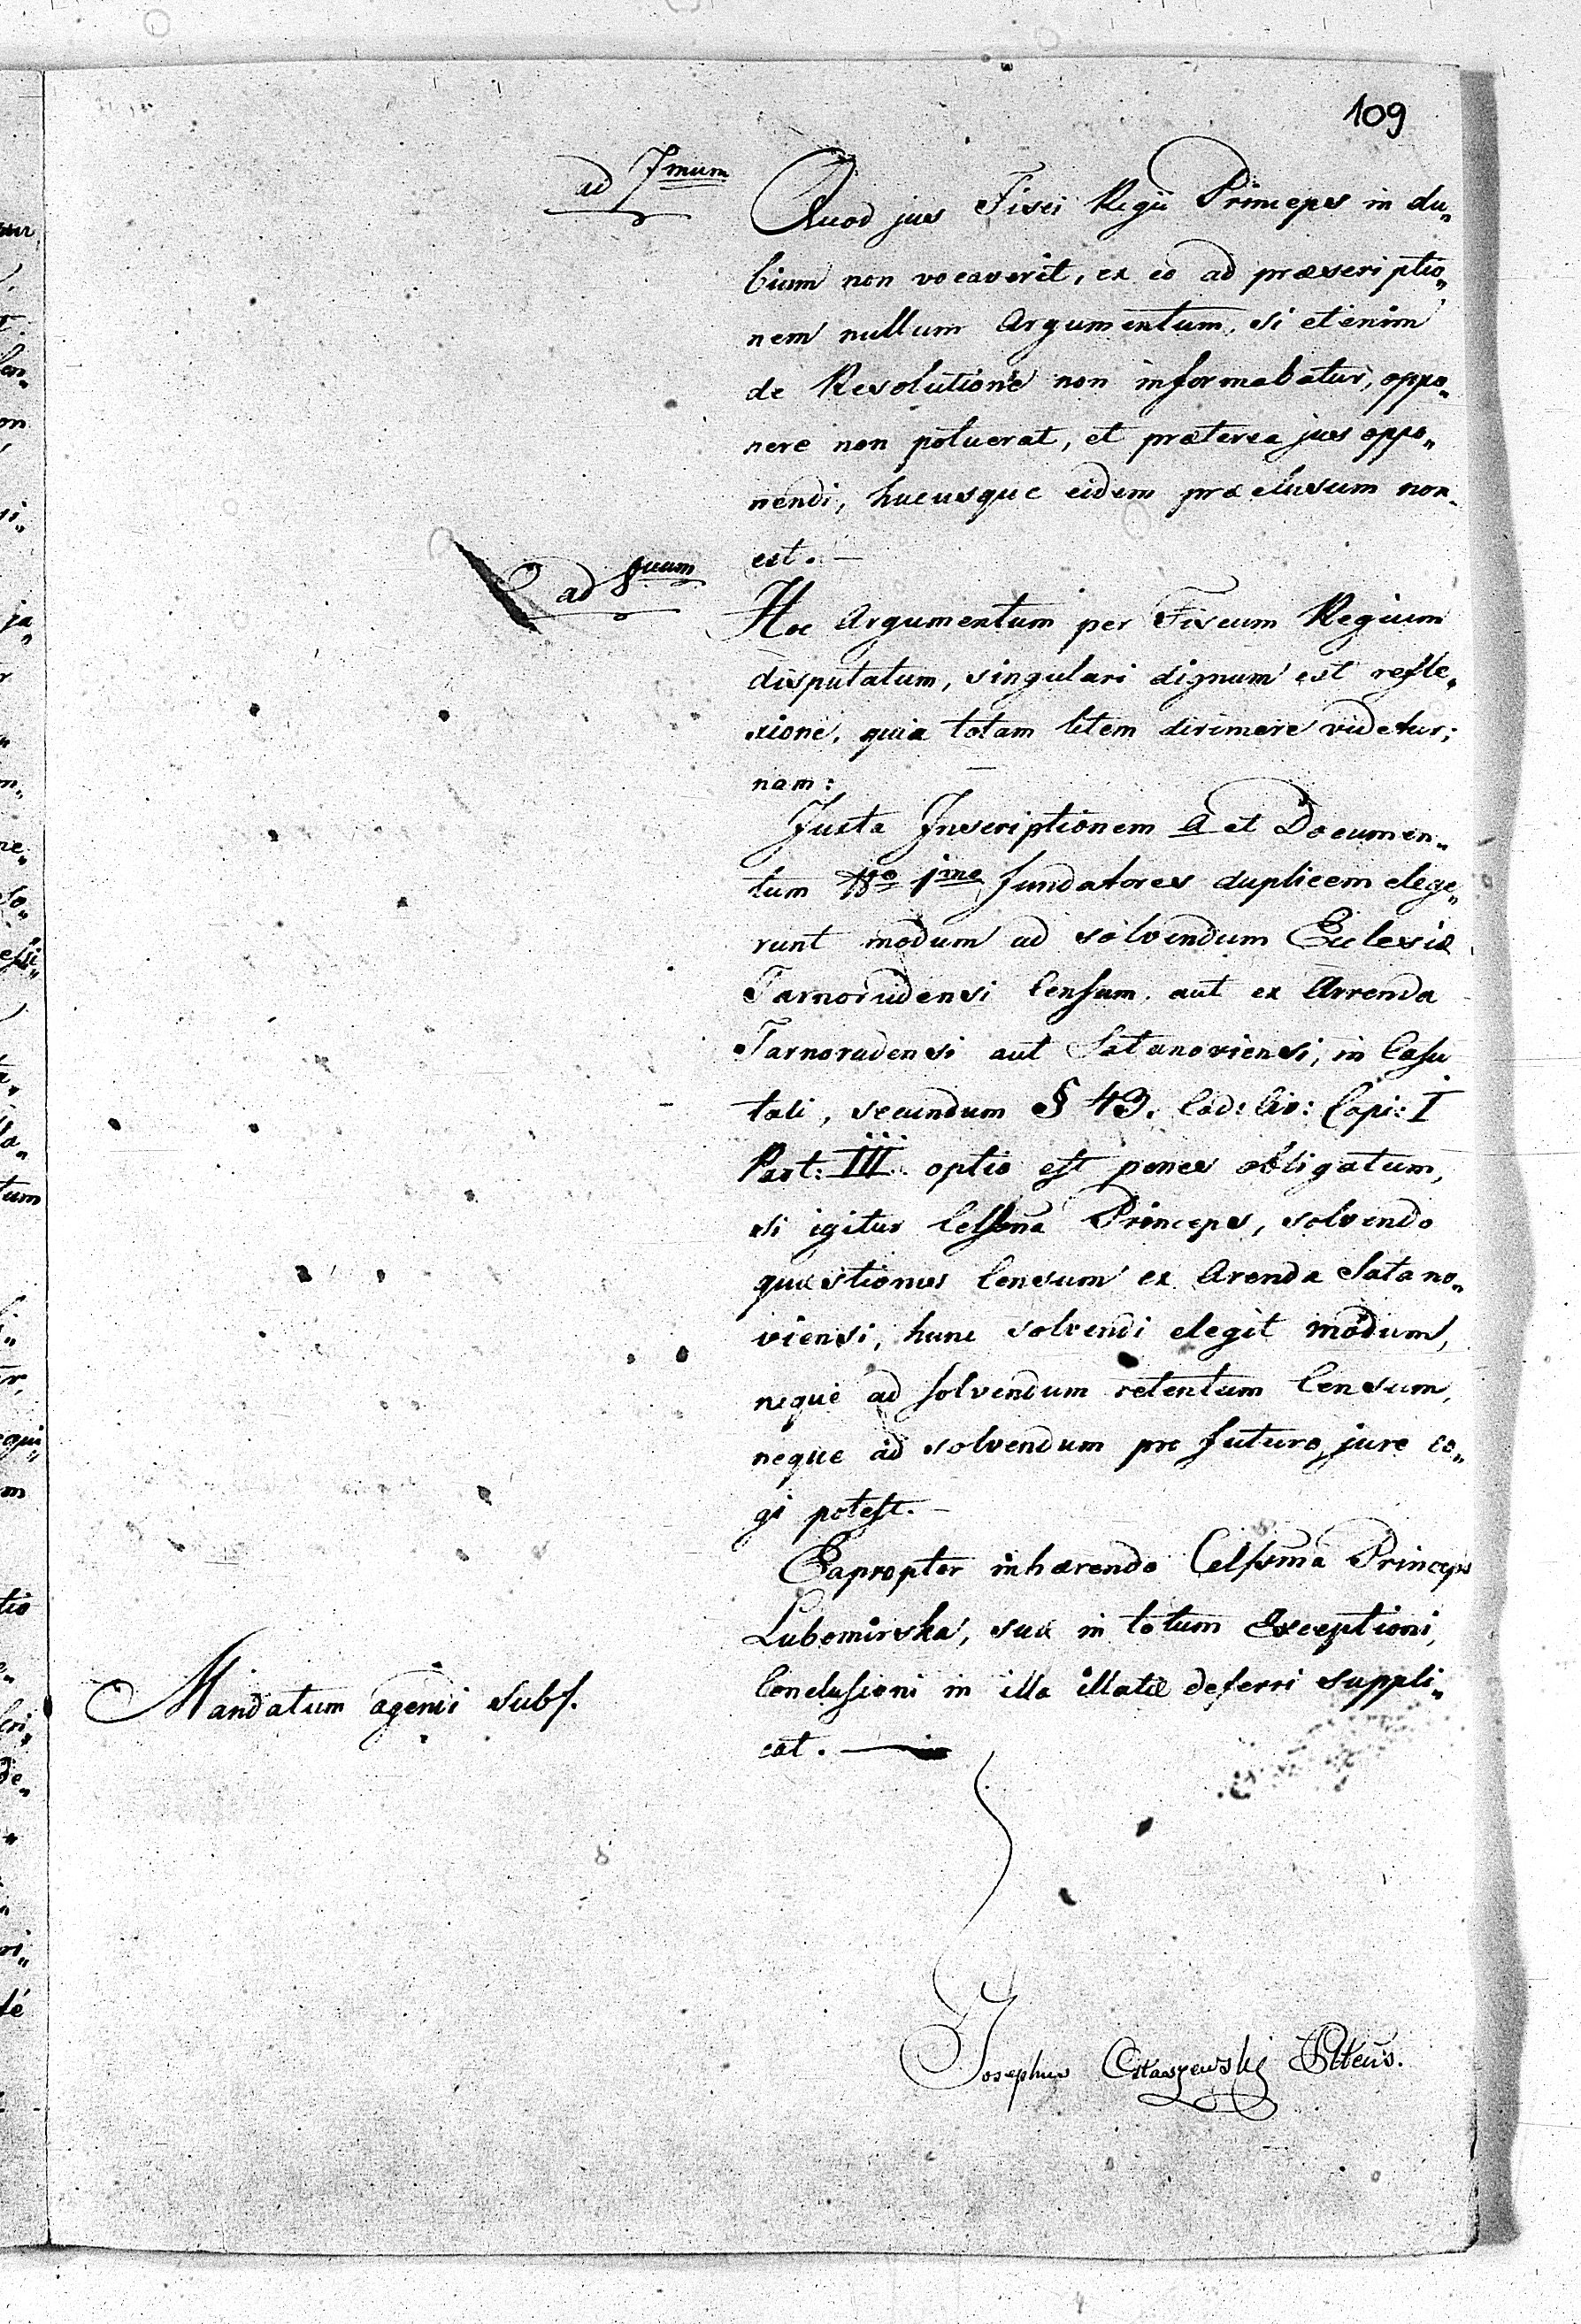 109
ad 7mum
Quod jus Fisci Regii Princeps in du„
bium non vocaverit, ex eo ad præscriptio„
nem nullum Argumentum, si etenim
de Resolutione non informabatur, oppo„
nere non potuerat, et præterea jus oppo„
nendi, hucusque eidem præclusum non
est. —
ad 8vum
Hoc Argumentum per Fiscum Regium
disputatum, singulari dignum est refle„
xione, quia totam litem dirimere videtur;
nam:
Juxta Inscriptionem A et Documen„
tum Nro 1mo fundatores duplicem elege„
runt modum ad solvendum Eclesiæ
Tarnorudensi Censum, aut ex Arrenda
Tarnorudensi aut Satanoviensi, in Casu
tali, secundum § 43. Cod: Civ: Capi: I
Part: III. optio est penes obligatum,
si igitur Celssma Princeps, solvendo
quæstionis Censum ex Arenda Satano„
viensi, hunc solvendi elegit modum,
neque ad solvendum retentum Censum,
neque ad solvendum pro futuro jure co„
gi potest. —
Eapropter inhærendo Celssma Princeps
Lubomirska, suæ in totum Exceptioni,
Conclusioni in illa illatæ deferri suppli„
cat. —
Mandatum agendi subs.
Josephus Ostaszewski